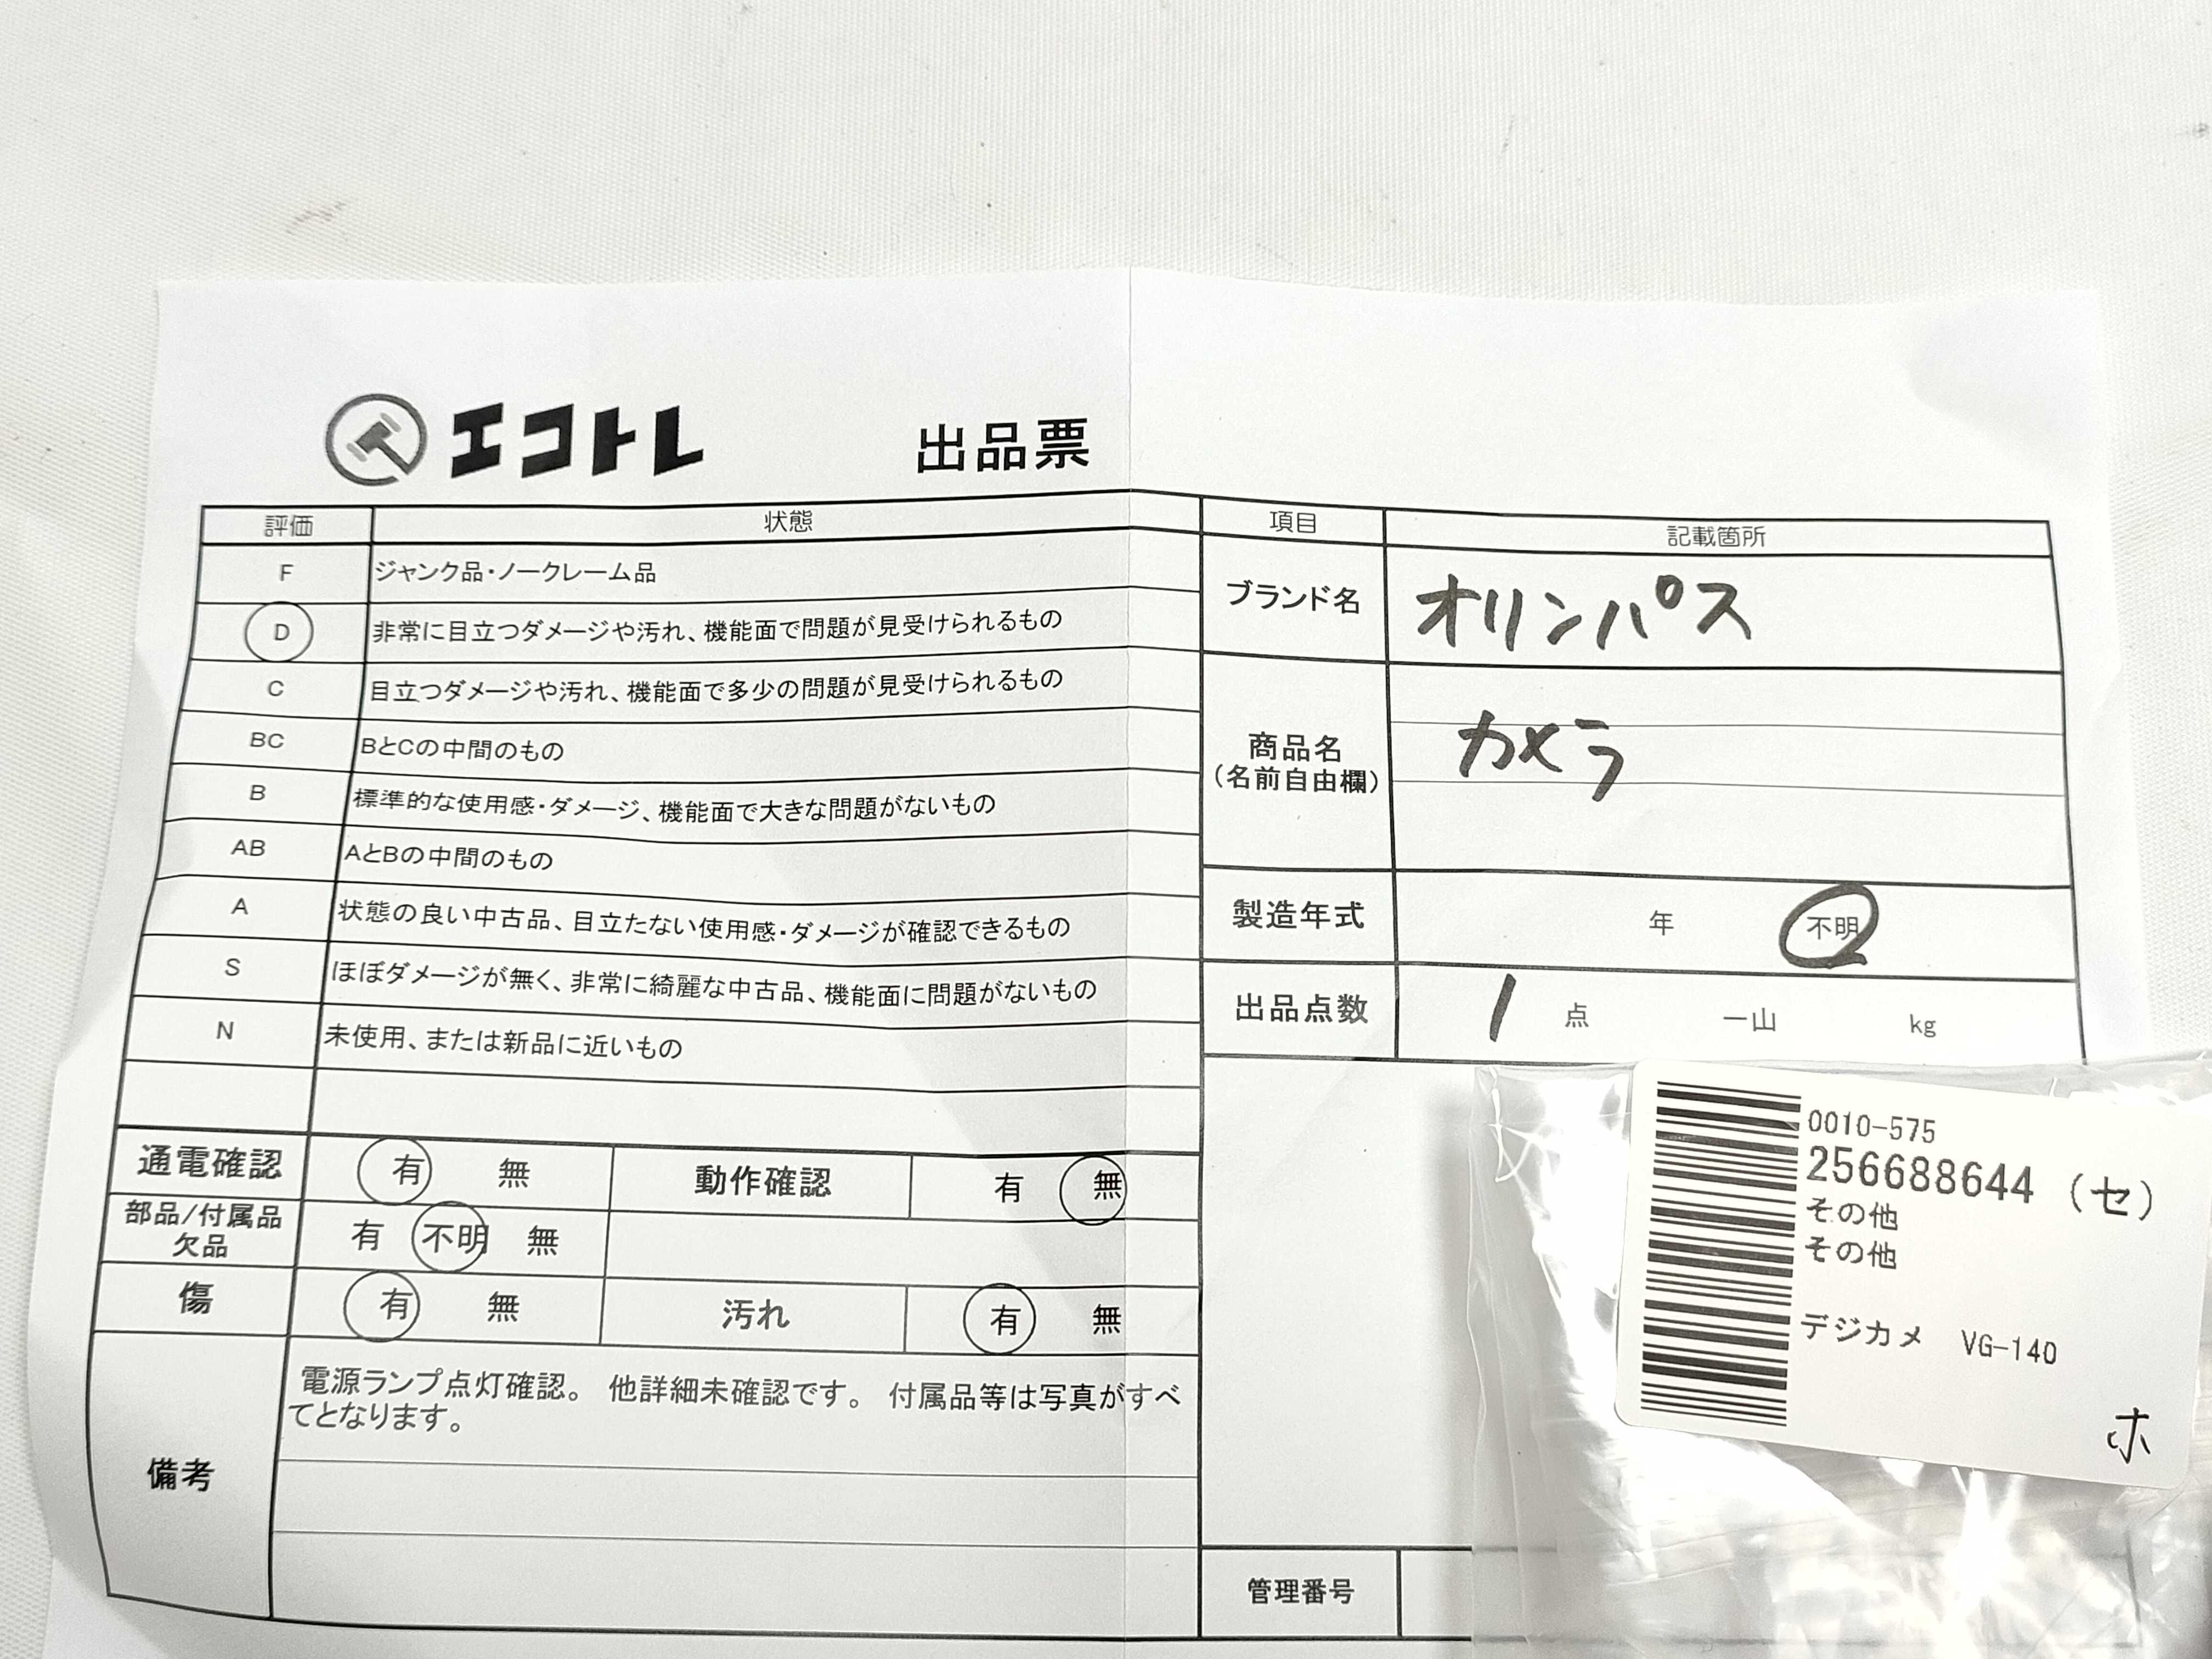 エコトレ 出品票
評価 状態
F ジャンク品・ノークレーム品
D 非常に目立つダメージや汚れ、機能面で問題が見受けられるもの
C 目立つダメージや汚れ、機能面で多少の問題が見受けられるもの
BC BとCの中間のもの
B 標準的な使用感・ダメージ、機能面で大きな問題がないもの
AB AとBの中間のもの
A 状態の良い中古品、目立たない使用感・ダメージが確認できるもの
S ほぼダメージが無く、非常に綺麗な中古品、機能面に問題がないもの
N 未使用、または新品に近いもの
通電確認 有 無 動作確認 有 無
部品/付属品
欠品 有 不明 無
傷 有 無 汚れ 有 無
備考
電源ランプ点灯確認。 他詳細未確認です。 付属品等は写真がすべ
てとなります。
項目 記載箇所
ブランド名 オリンパス
商品名
(名前自由欄) カメラ
製造年式 年 不明
出品点数 1 点 一山 kg
管理番号
0010-575
256688644 (セ)
その他
その他
デジカメ VG-140
ホ